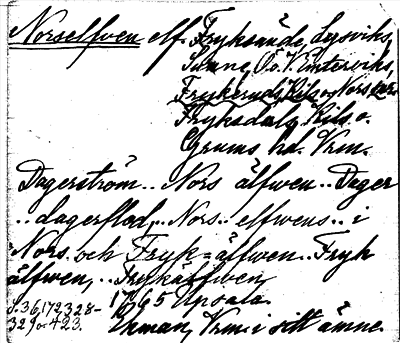 Norselfven elf. Fryksände, Lysviks,
Sunne, Ö.o. V. Ämterviks,
Frykeruds, Kils o. Nors snr
Fryksdals, Kils o.
Grums hd. Vrm.
Dagerström .. Nors älfwen .. Dager
.. dagerflod, .. Nors .. elfwens .. i
Nors och Fryk=älfwen .. Fryk
älfwen, .. Frykälfwen,
s. 36, 172, 328- 1765 Upsala.
329 o. 423. Uhman, Vrm. i sitt ämne